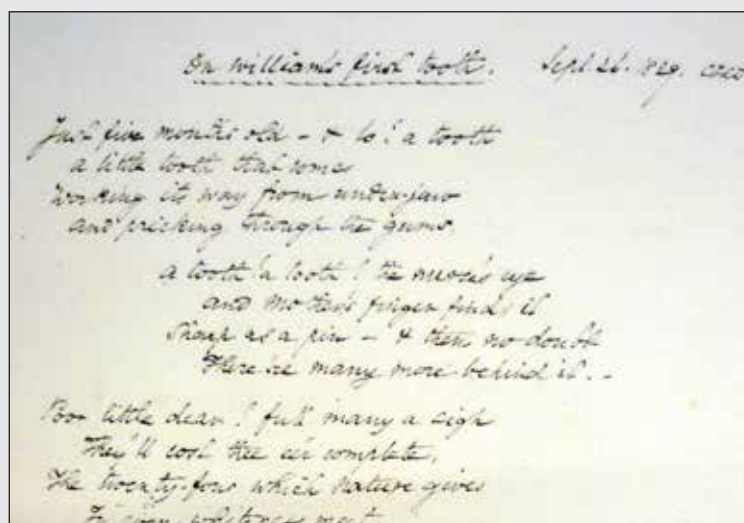 On william's first tooth. Sept 26. 1829.
Just five months old - & lo! a tooth
a little tooth that comes
Working its way from under-jaw
and pricking through the gums.
a tooth! a tooth! the nurse's eye
and mother's finger finds it
Sharp as a pin - & then no doubt
There're many more behind it. -
Poor little dear! full many a sigh
They'll cost thee ere complete,
The twenty-four which nature gives